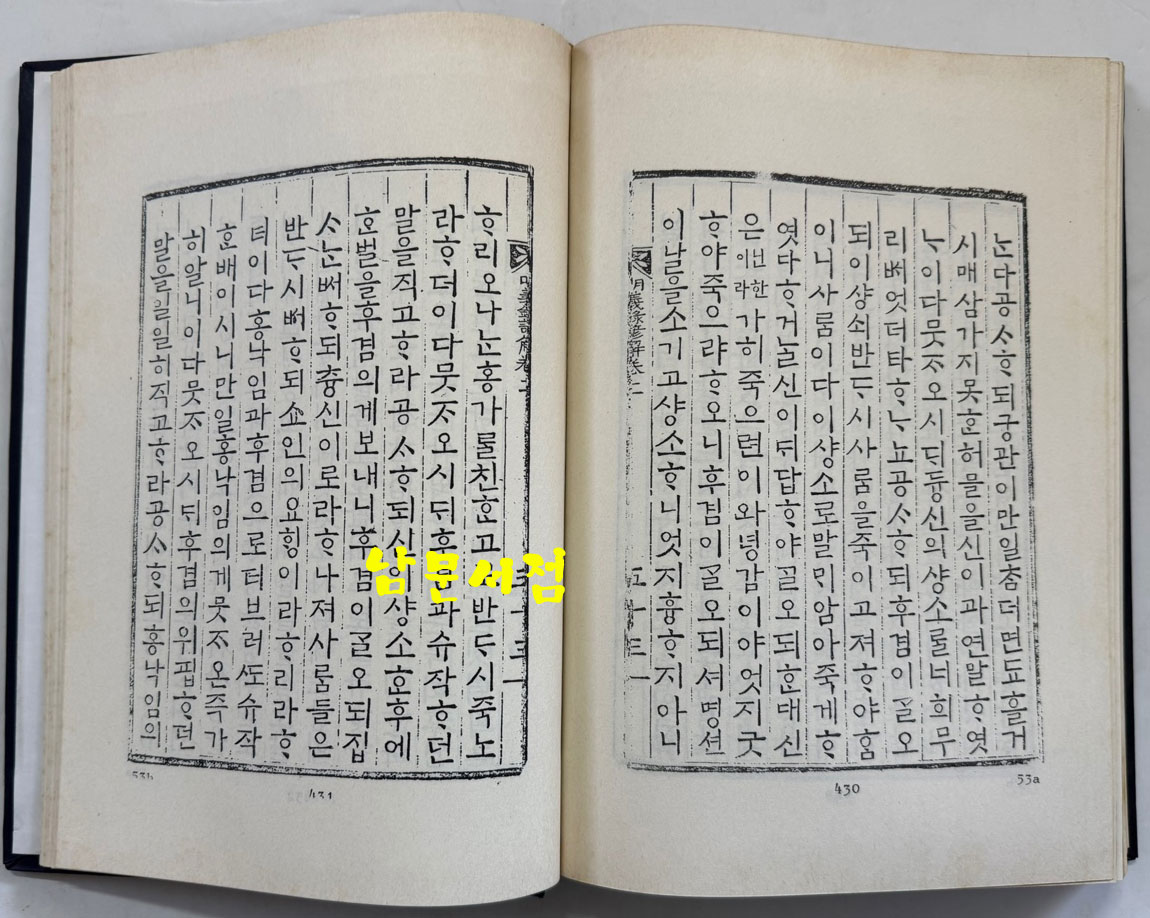 ᄂᆞᆫ다공ᄉᆞᄒᆞ되궁관이만일ᄎᆞᆷ더면됴흘거
시매삼가지못ᄒᆞᆫ허믈을신이과연말ᄒᆞ엿
ᄂᆞ이다뭇ᄌᆞ오시ᄃᆡ듕신의샹소ᄅᆞᆯ너희무
리ᄲᅥ엇더타ᄒᆞᄂᆞ뇨공ᄉᆞᄒᆞ되후겸이ᄀᆞᆯ오
되이샹쇠반ᄃᆞ시사ᄅᆞᆷ을죽이고져ᄒᆞ야ᄒᆞᆷ
이니사ᄅᆞᆷ이다이샹소로말ᄆᆡ암아죽게ᄒᆞ
엿다ᄒᆞ거ᄂᆞᆯ신이ᄃᆡ답ᄒᆞ야ᄀᆞᆯ오되ᄒᆞᆫ대신
은번한이라가히죽으련이와녕감이야엇지굿
ᄒᆞ야죽으랴ᄒᆞ오니후겸이ᄀᆞᆯ오되셔명션
이날을소기고샹소ᄒᆞ니엇지흉ᄒᆞ지아니
明義錄諺解卷二 五十三
53a
430
明義錄諺解卷二 五十三
ᄒᆞ리오나ᄂᆞᆫ흥가ᄅᆞᆯ친ᄒᆞᆫ고로반ᄃᆞ시죽노
라ᄒᆞ더이다뭇ᄌᆞ오시ᄃᆡ후겸과슈작ᄒᆞ던
말을직고ᄒᆞ라공ᄉᆞᄒᆞ되신이샹소ᄒᆞᆫ후에
호벌을후겸의게보내니후겸이ᄀᆞᆯ오되집
ᄉᆞᄂᆞᆫᄲᅥᄒᆞ되츙신이로라ᄒᆞ나져사ᄅᆞᆷ들은
반ᄃᆞ시ᄲᅥᄒᆞ되쇼인의요ᄒᆡᆼ이라ᄒᆞ리라ᄒᆞ
터이다홍낙임과후겸으로터브러ᄯᅩ슈작
ᄒᆞᆫ배이시니만일홍낙임의게뭇ᄌᆞ온즉가
히알니이다뭇ᄌᆞ오시ᄃᆡ후겸의위핍ᄒᆞ던
말을일일히직고ᄒᆞ라공ᄉᆞᄒᆞ되홍낙임의
53b
431
남문서점